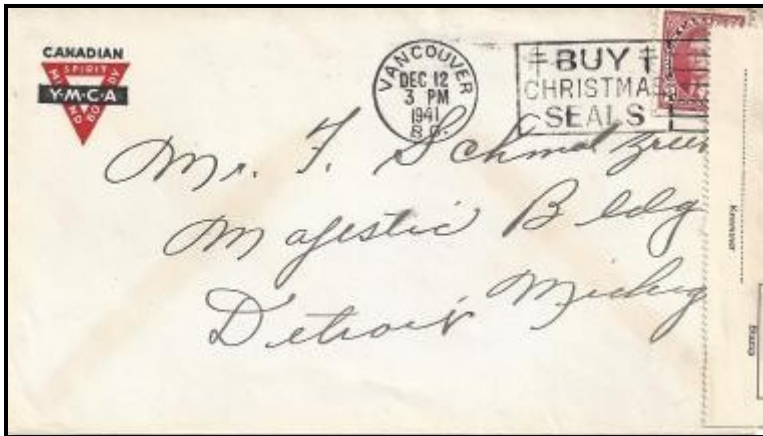 CANADIAN
SPIRIT
MIND
BODY
Y·M·C·A
VANCOUVER
DEC 12
3 PM
1941
B.C.
BUY
CHRISTMAS
SEALS
Mr. F.
Majestic Bldg
Detroit Michig